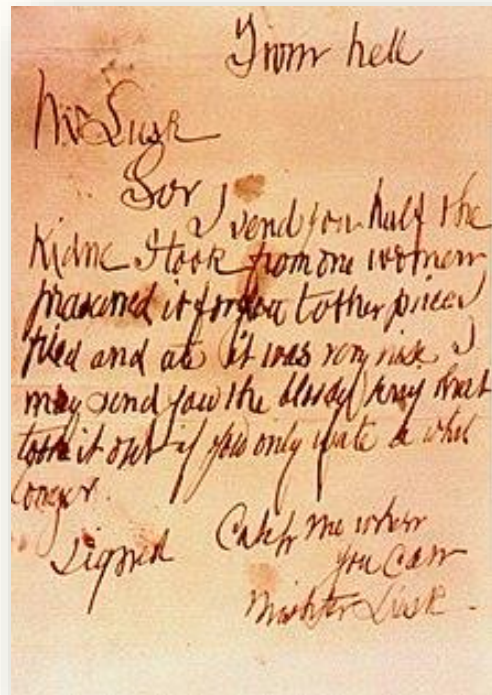 From hell
Mr Lusk
Sor
I send you half the
Kidne I took from one women
prasarved it for you tother piece I
fried and ate it was very nise I
may send you the bloody knif that
took it out if you only wate a whil
longer.
signed Catch me when
you Can
Mishter Lusk.